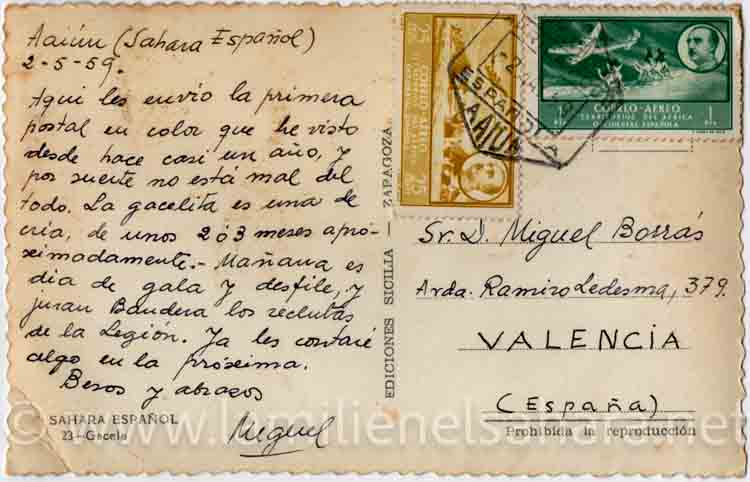 Aaiún (Sahara Español)
2-5-59.
Aqui les envío la primera
postal en color que he visto
desde hace casi un año, y
por suerte no está mal del
todo. La gacelita es una de
cría, de unos 2 ó 3 meses apro-
ximadamente.- Mañana es
dia de gala y desfile, y
juran Bandera los reclutas
de la Legión. Ya les contaré
algo en la próxima.
Besos y abrazos
Miguel
SAHARA ESPAÑOL
23-Gacela
EDICIONES SICILIA — ZAPAGOZA
25
CORREO-AEREO
25
ESPAÑOLA
AAIUN
CORREO-AEREO
TERRITORIOS DEL AFRICA
OCCIDENTAL ESPAÑOLA
1
PTA
Sr. D. Miguel Borrás
Avda. Ramiro Ledesma, 379.
VALENCIA
(España)
Prohibida la reproducción
© www.lamilienelsahara.net